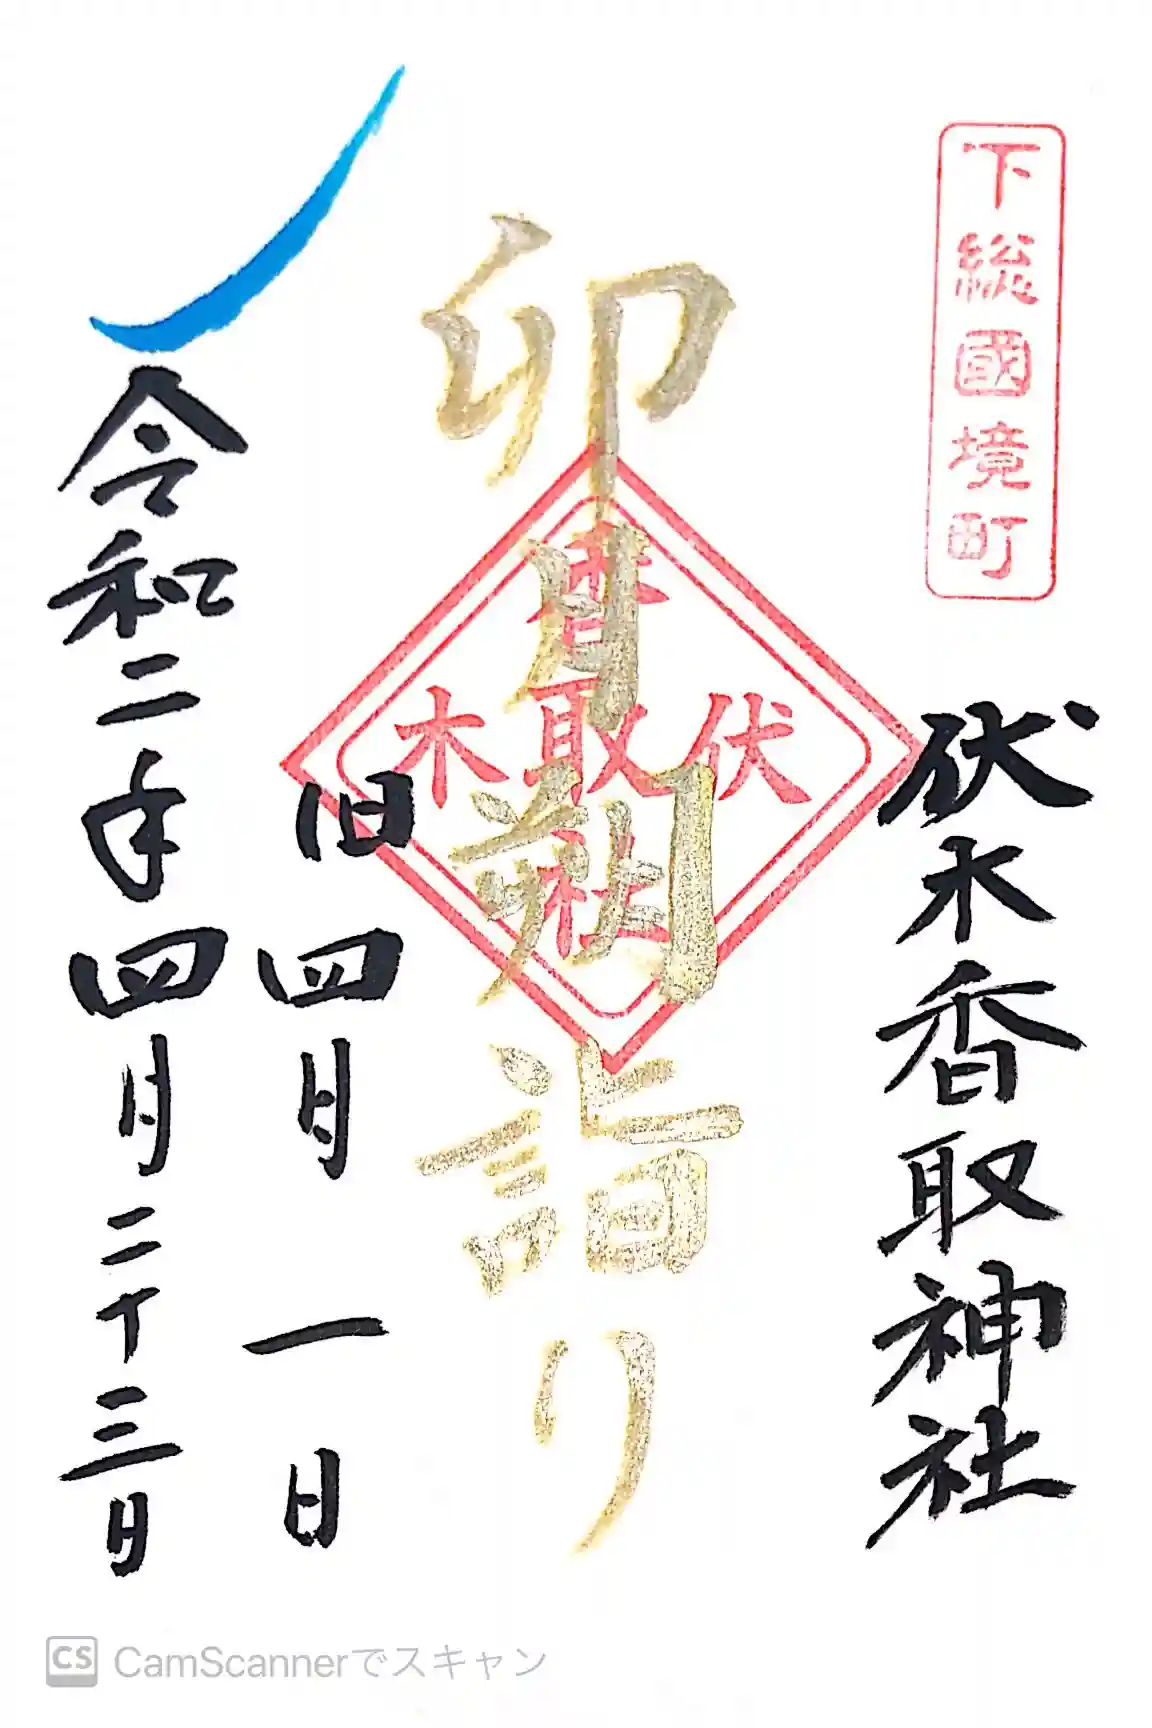 下総國境町
伏木香取神社
卯月朔詣り
伏木
香取社
旧四月一日
令和二年四月二十三日
CS CamScannerでスキャン